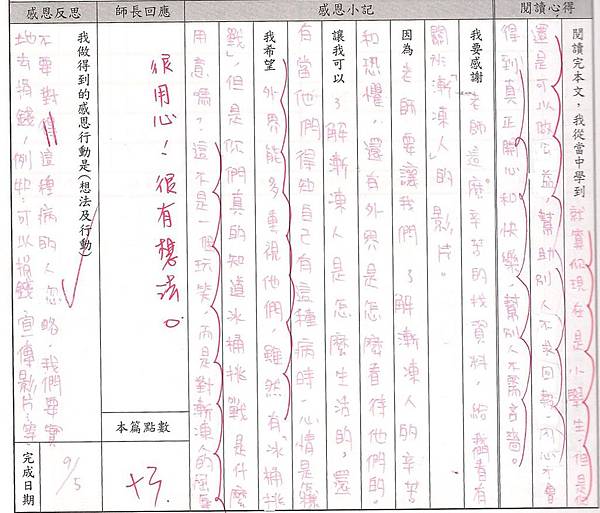 閱讀心得
閱讀完本文，我從當中學到就算你現在是小學生，但是你
還是可以做公益，幫助別人不求回報，同心才會
得到真正開心和快樂，幫別人不需吝嗇。
感恩小記
我要感謝老師這麼辛苦的找資料，給我們看有
關於「漸凍人」的影片。
因為老師要讓我們了解漸凍人的辛苦
和恐懼，還有外界是怎麼看待他們的。
讓我可以了解漸凍人是怎麼生活的，還
有當他們得知自己有這種病時，心情是
我希望外界能多重視他們，雖然有「冰桶挑
戰」但是你們真的知道冰桶挑戰是什麼
用意嗎？這不是一個玩笑，而是對漸凍人的
師長回應
很用心！很有想法。
本篇點數
+3
感恩反思
我做得到的感恩行動是(想法及行動)
不要對得這種病的人忽略，我們要實
地去捐錢，例如：可以捐錢、宣傳影片…等
完成日期
9/5